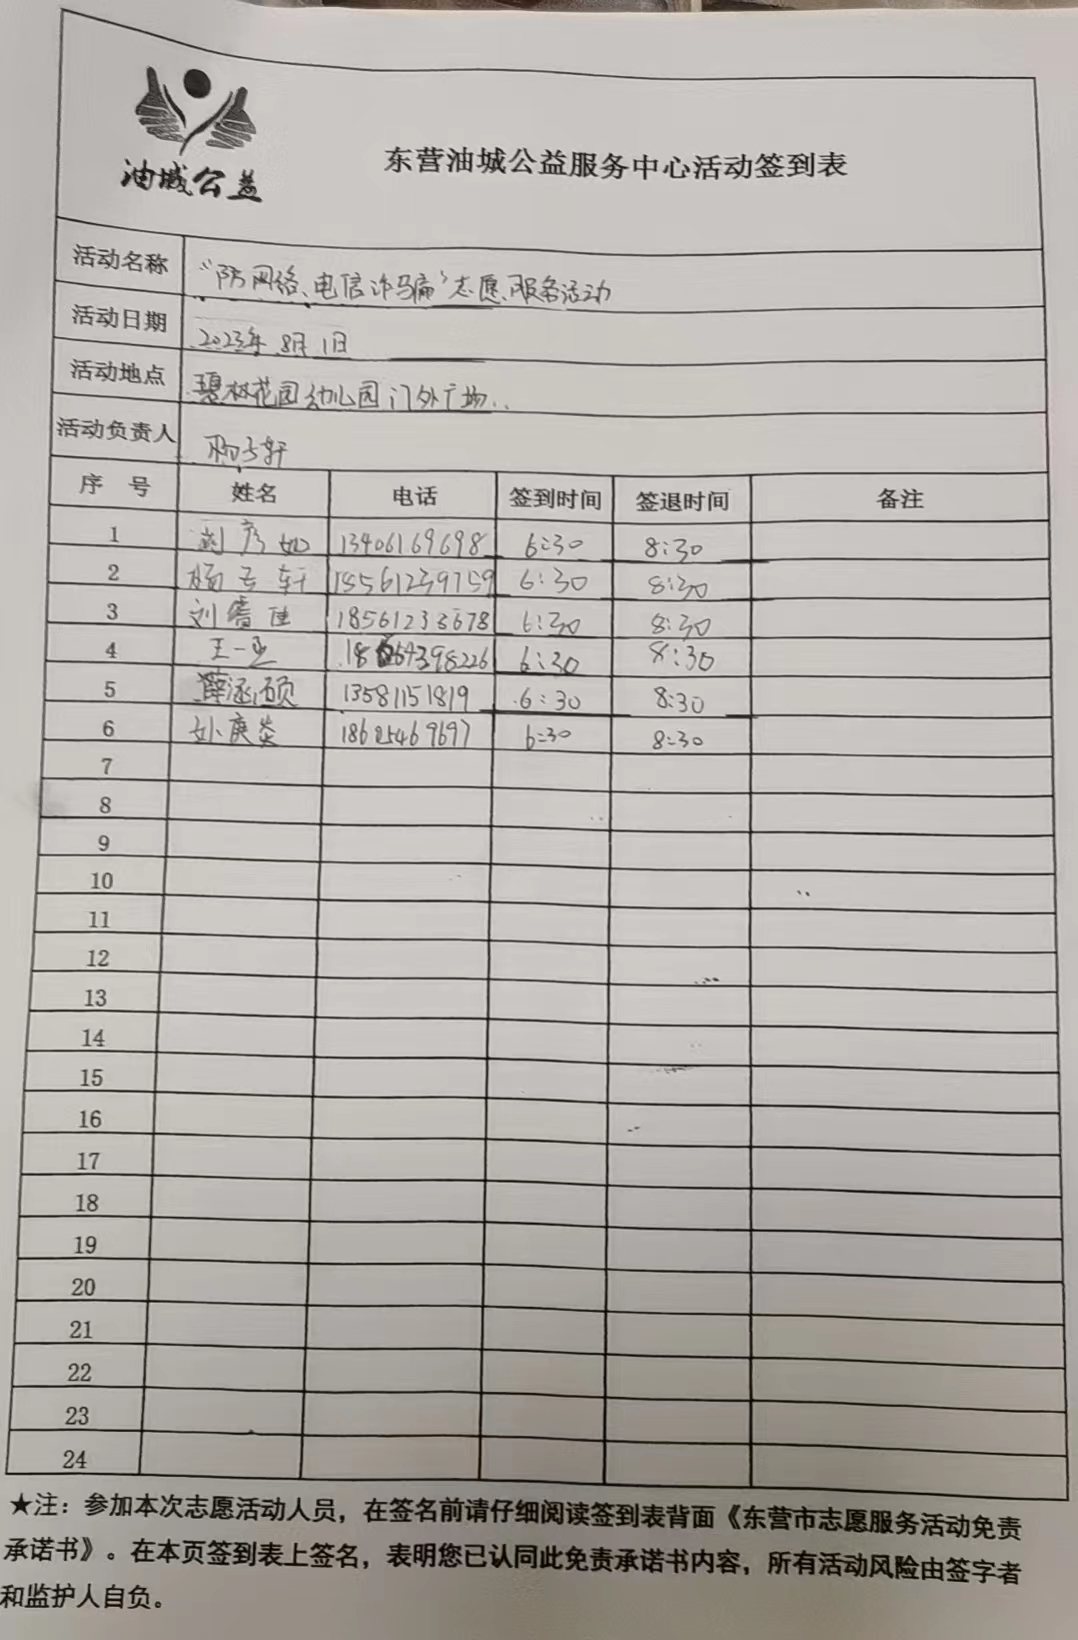 油城公益
东营油城公益服务中心活动签到表
活动名称 “防网络、电信诈骗”志愿服务活动
活动日期 2023年8月1日
活动地点 碧林花园幼儿园门外广场..
活动负责人 杨子轩
序号 姓名 电话 签到时间 签退时间 备注
1 刘彦如 13406169698 6:30 8:30
2 杨子轩 18561239759 6:30 8:30
3 刘睿佳 18561233678 6:30 8:30
4 王一 6:30 8:30
5 薛涵硕 13581151819 6:30 8:30
6 孙庚炎 18625469697 6:30 8:30
7
8
9
10
11
12
13
14
15
16
17
18
19
20
21
22
23
24
★注：参加本次志愿活动人员，在签名前请仔细阅读签到表背面《东营市志愿服务活动免责
承诺书》。在本页签到表上签名，表明您已认同此免责承诺书内容，所有活动风险由签字者
和监护人自负。